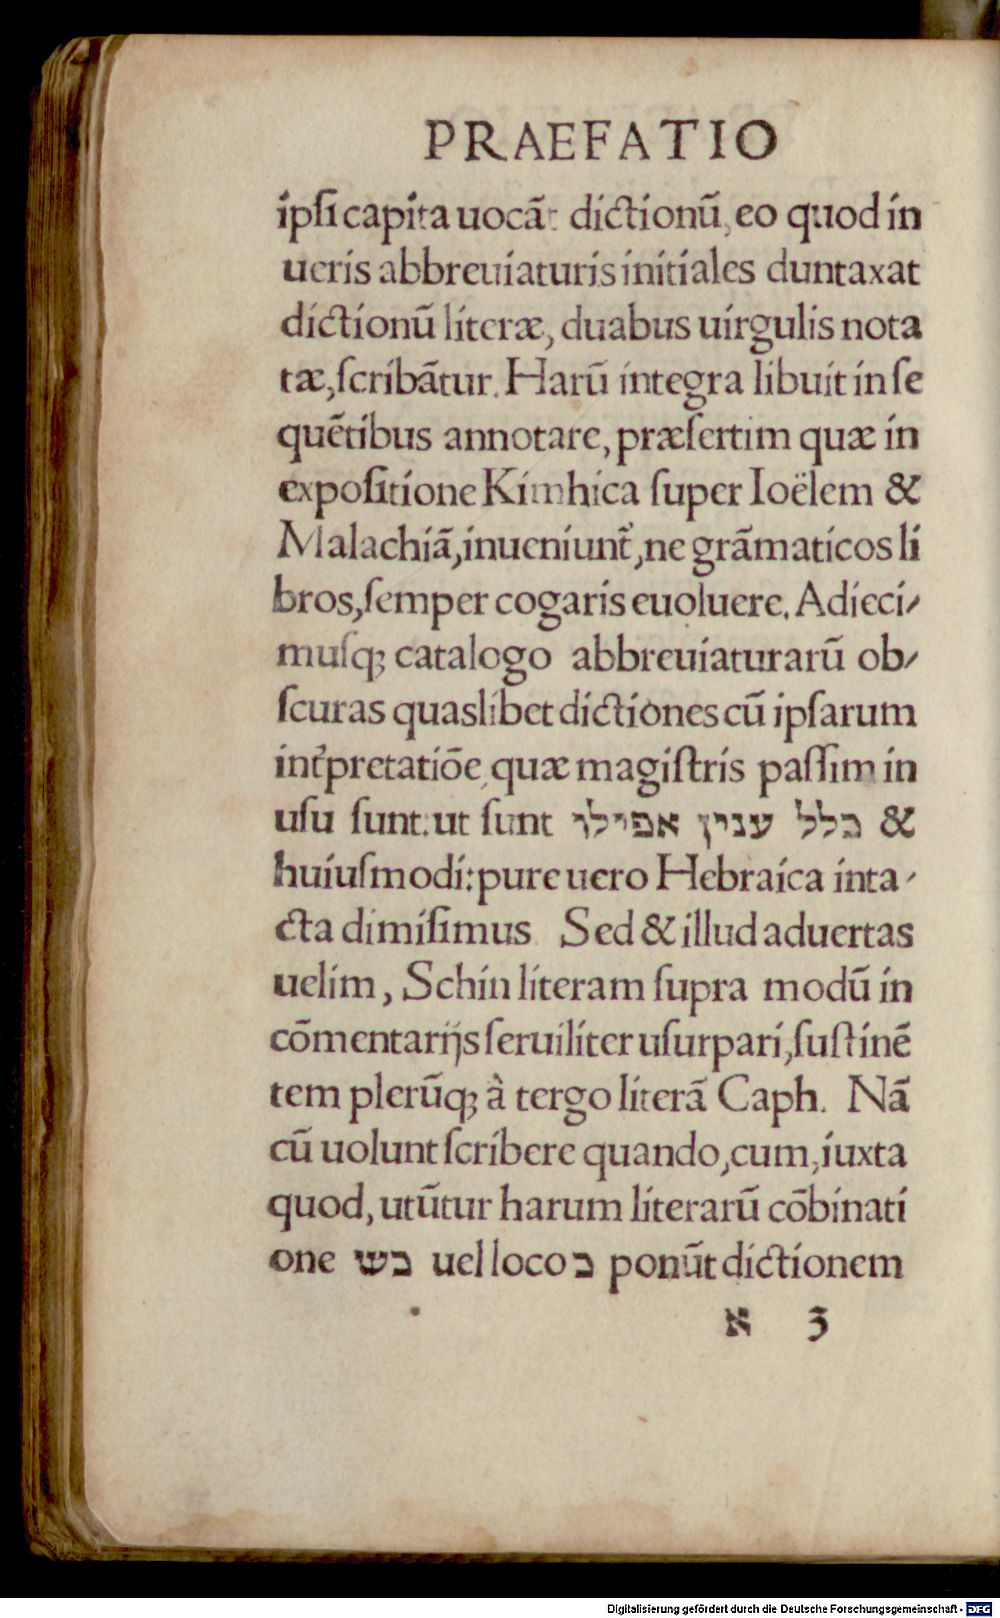 PRAEFATIO
ipſi capita uocãt dictionũ, eo quod in
ueris abbreuiaturis initiales duntaxat
dictionũ literæ, duabus uirgulis nota
tæ, ſcribãtur. Harũ integra libuit in ſe
quẽtibus annotare, præſertim quæ in
expoſitione Kimhica ſuper Ioëlem &
Malachiã, inueniunt̃, ne grãmaticos li
bros, ſemper cogaris euoluere. Adieci⸗
muſq; catalogo abbreuiaturarũ ob⸗
ſcuras quaslibet dictiones cũ ipſarum
int̃pretatiõe, quæ magiſtris paſſim in
uſu ſunt: ut ſunt כלל ענין אפילו &
huiuſmodi: pure uero Hebraica inta⸗
cta dimiſimus. Sed & illud aduertas
uelim, Schin literam ſupra modũ in
cõmentarijs ſeruiliter uſurpari, ſuſtinẽ
tem plerũq; à tergo literã Caph. Nã
cũ uolunt ſcribere quando, cum, iuxta
quod, utũtur harum literarũ cõbinati
one כש uel loco כ ponũt dictionem
א 3
Digitalisierung gefördert durch die Deutsche Forschungsgemeinschaft - DFG